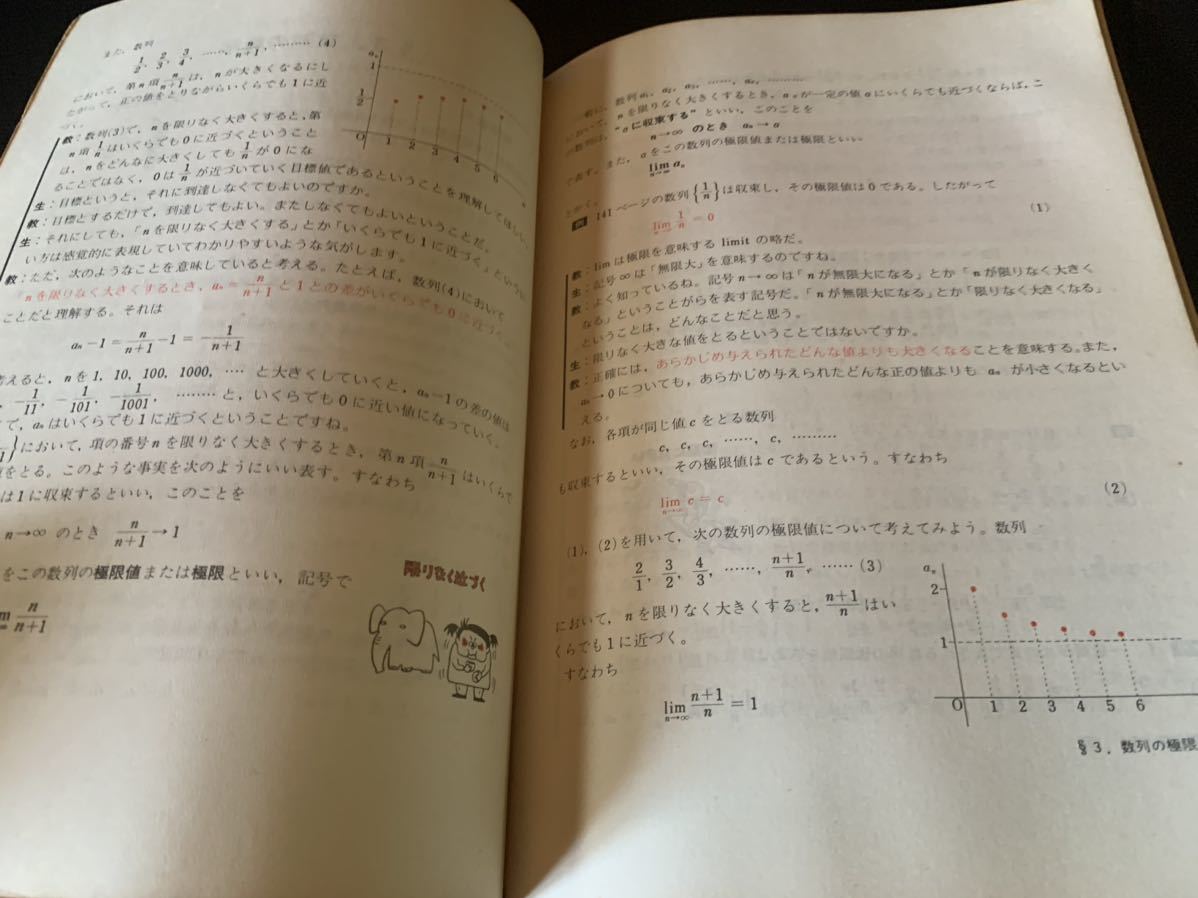 また，数列
1/2, 2/3, 3/4, ……, n/n+1, ……… (4)
において，第n項 n/n+1 は，nが大きくなるにし
たがって，正の値をとりながらいくらでも1に近
づく。
aₙ
1
1/2
O 1 2 3 4 5 6
教：数列(3)で，nを限りなく大きくすると，第
n項 1/n はいくらでも0に近づくということ
は，nをどんなに大きくしても 1/n が0にな
ることではなく，0は 1/n が近づいていく目標値であるということを理解してほしい。
生：目標というと，それに到達しなくてもよいのですか。
教：目標とするだけで，到達してもよい。またしなくてもよいということだ。
生：それにしても，「nを限りなく大きくする」とか「いくらでも1に近づく」という
い方は感覚的に表現していてわかりやすいような気がします。
教：ただ，次のようなことを意味していると考える。たとえば，数列(4)において
「nを限りなく大きくするとき，aₙ = n/n+1 と1との差がいくらでも0に近づく」
ことだと理解する。それは
aₙ−1 = n/n+1 −1 = −1/n+1
考えると，nを1, 10, 100, 1000, …… と大きくしていくと，aₙ−1の差の値は
, −1/11, −1/101, −1/1001, ……… と，いくらでも0に近い値になっていく。
て，aₙはいくらでも1に近づくということですね。
} において，項の番号nを限りなく大きくするとき，第n項 n/n+1 はいくらで
値をとる。このような事実を次のようにいい表す。すなわち
は1に収束するといい，このことを
n→∞ のとき n/n+1 → 1
をこの数列の極限値または極限といい，記号で
n/n+1
限りなく近づく
一般に，数列 a₁, a₂, a₃, ……, aₙ, ………
において，nを限りなく大きくするとき，aₙが一定の値αにいくらでも近づくならば，こ
の数列は，“αに収束する”といい，このことを
n→∞ のとき aₙ→α
で表す。また，αをこの数列の極限値または極限といい
lim n→∞ aₙ
とかく。
例 141ページの数列{1/n}は収束し，その極限値は0である。したがって
lim n→∞ 1/n = 0 (1)
教：limは極限を意味するlimitの略だ。
生：記号∞は「無限大」を意味するのですね。
教：よく知っているね。記号n→∞は「nが無限大になる」とか「nが限りなく大きく
なる」ということがらを表す記号だ。「nが無限大になる」とか「限りなく大きくなる」
ということは，どんなことだと思う。
生：限りなく大きな値をとるということではないですか。
教：正確には，あらかじめ与えられたどんな値よりも大きくなることを意味する。また，
aₙ→0についても，あらかじめ与えられたどんな正の値よりも aₙ が小さくなるとい
える。
なお，各項が同じ値cをとる数列
c, c, c, ……, c, ………
も収束するといい，その極限値はcであるという。すなわち
lim n→∞ c = c (2)
(1)，(2)を用いて，次の数列の極限値について考えてみよう。数列
2/1, 3/2, 4/3, ……, n+1/n, …… (3)
において，nを限りなく大きくすると，n+1/n はい
くらでも1に近づく。
すなわち
lim n→∞ n+1/n = 1
aₙ
2
1
O 1 2 3 4 5 6
§3．数列の極限